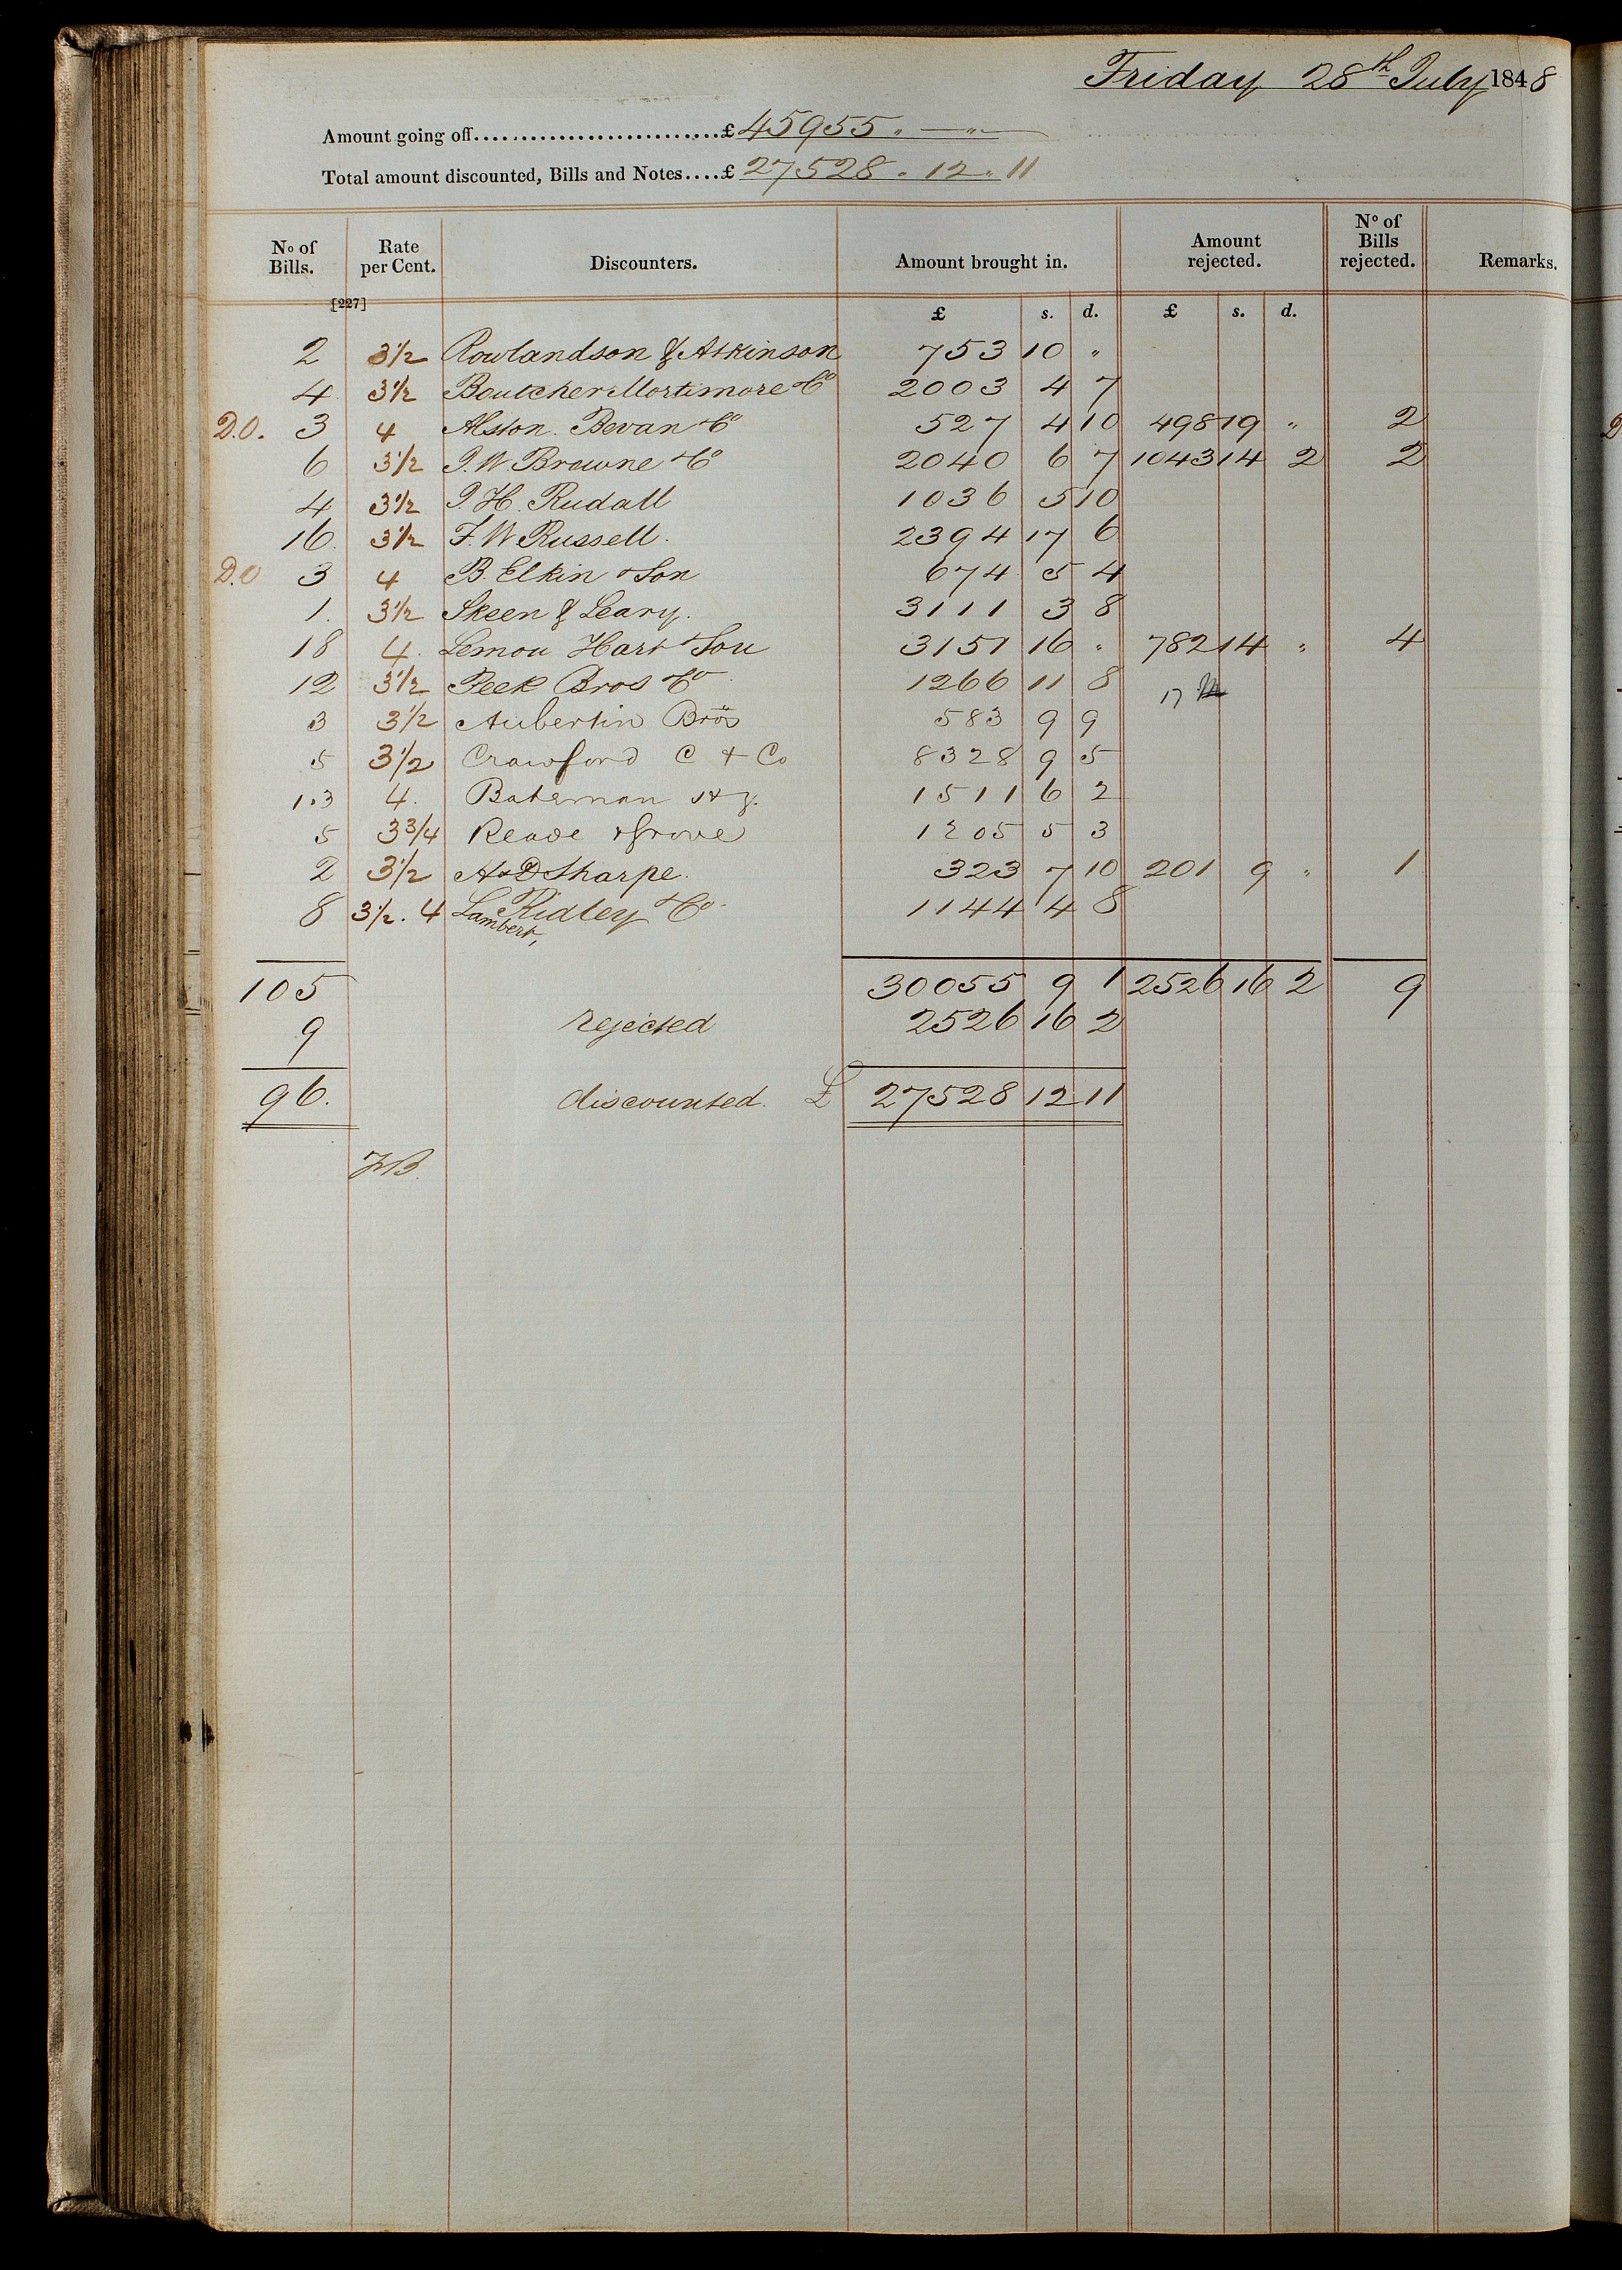 Friday 28th July 1848
Amount going off..........................£ 45955 " — " —
Total amount discounted, Bills and Notes....£ 27528 " 12 " 11
No of Bills. Rate per Cent. Discounters. Amount brought in. Amount rejected. No of Bills rejected. Remarks.
[227]
£ s. d. £ s. d.
2 3 1/2 Rowlandson & Atkinson 753 10 "
4 3 1/2 Boutcher Mortimore & Co 2003 4 7
D.O. 3 4 Alston Bevan & Co 527 4 10 498 19 " 2
6 3 1/2 J. W Browne & Co 2040 6 7 1043 14 2 2
4 3 1/2 J. H. Rudall 1036 5 10
16 3 1/2 F. W Russell. 2394 17 6
D.O 3 4 B. Elkin & Son 674 5 4
1. 3 1/2 Skeen & Leary. 3111 3 8
18 4. Lemon Hart & Son 3151 16 " 782 14 " 4
12 3 1/2 Peek Bros & Co 1266 11 8
17
3 3 1/2 Aubertin Bros 583 9 9
5 3 1/2 Crawford C & Co 8328 9 5
1.3 4. Bateman 1511 6 2
5 3 3/4 Reade & Grove 1205 5 3
2 3 1/2 A & D Sharpe. 323 7 10 201 9 " 1
8 3 1/2. 4 Lambert, Ridley & Co 1144 4 8
105 30055 9 1 2526 16 2 9
9 rejected 2526 16 2
96. discounted. £ 27528 12 11